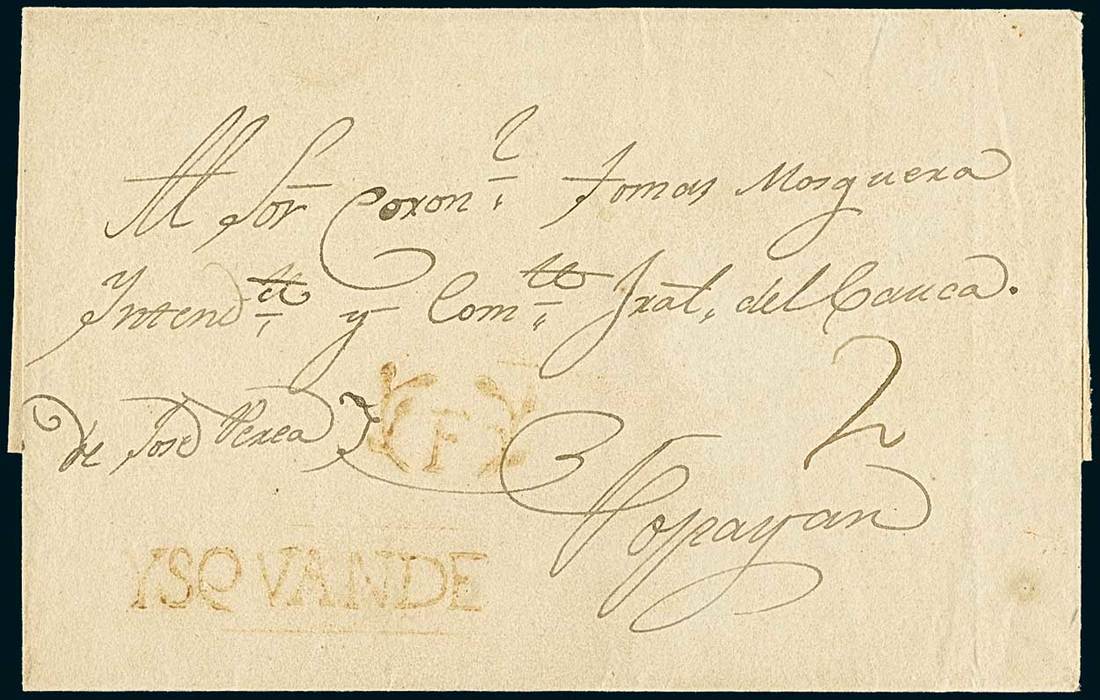 Al Sor Coronl. Tomas Mosquera
Intendte. y Comte. Jral. del Cauca.
2
de José Perea
F
Popayan
YSQVANDE